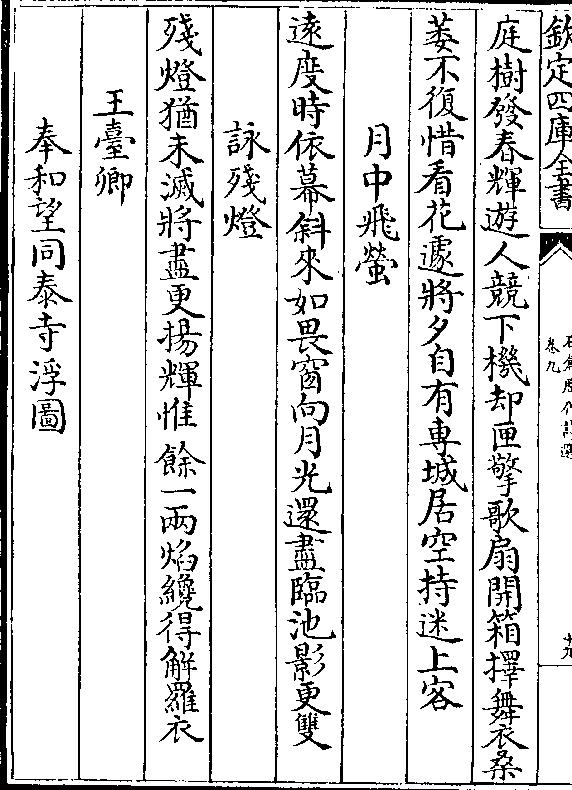 欽定四庫全書
石倉歷代詩選
卷九
十九
庭樹發春輝遊人競下機却匣擎歌扇開箱擇舞衣桑
萎不復惜看花遽將夕自有專城居空持迷上客
月中飛螢
遠度時依幕斜來如畏窗向月光還盡臨池影更雙
詠殘燈
殘燈猶未滅將盡更揚輝惟餘一兩焰纔得解羅衣
王臺卿
奉和望同泰寺浮圖